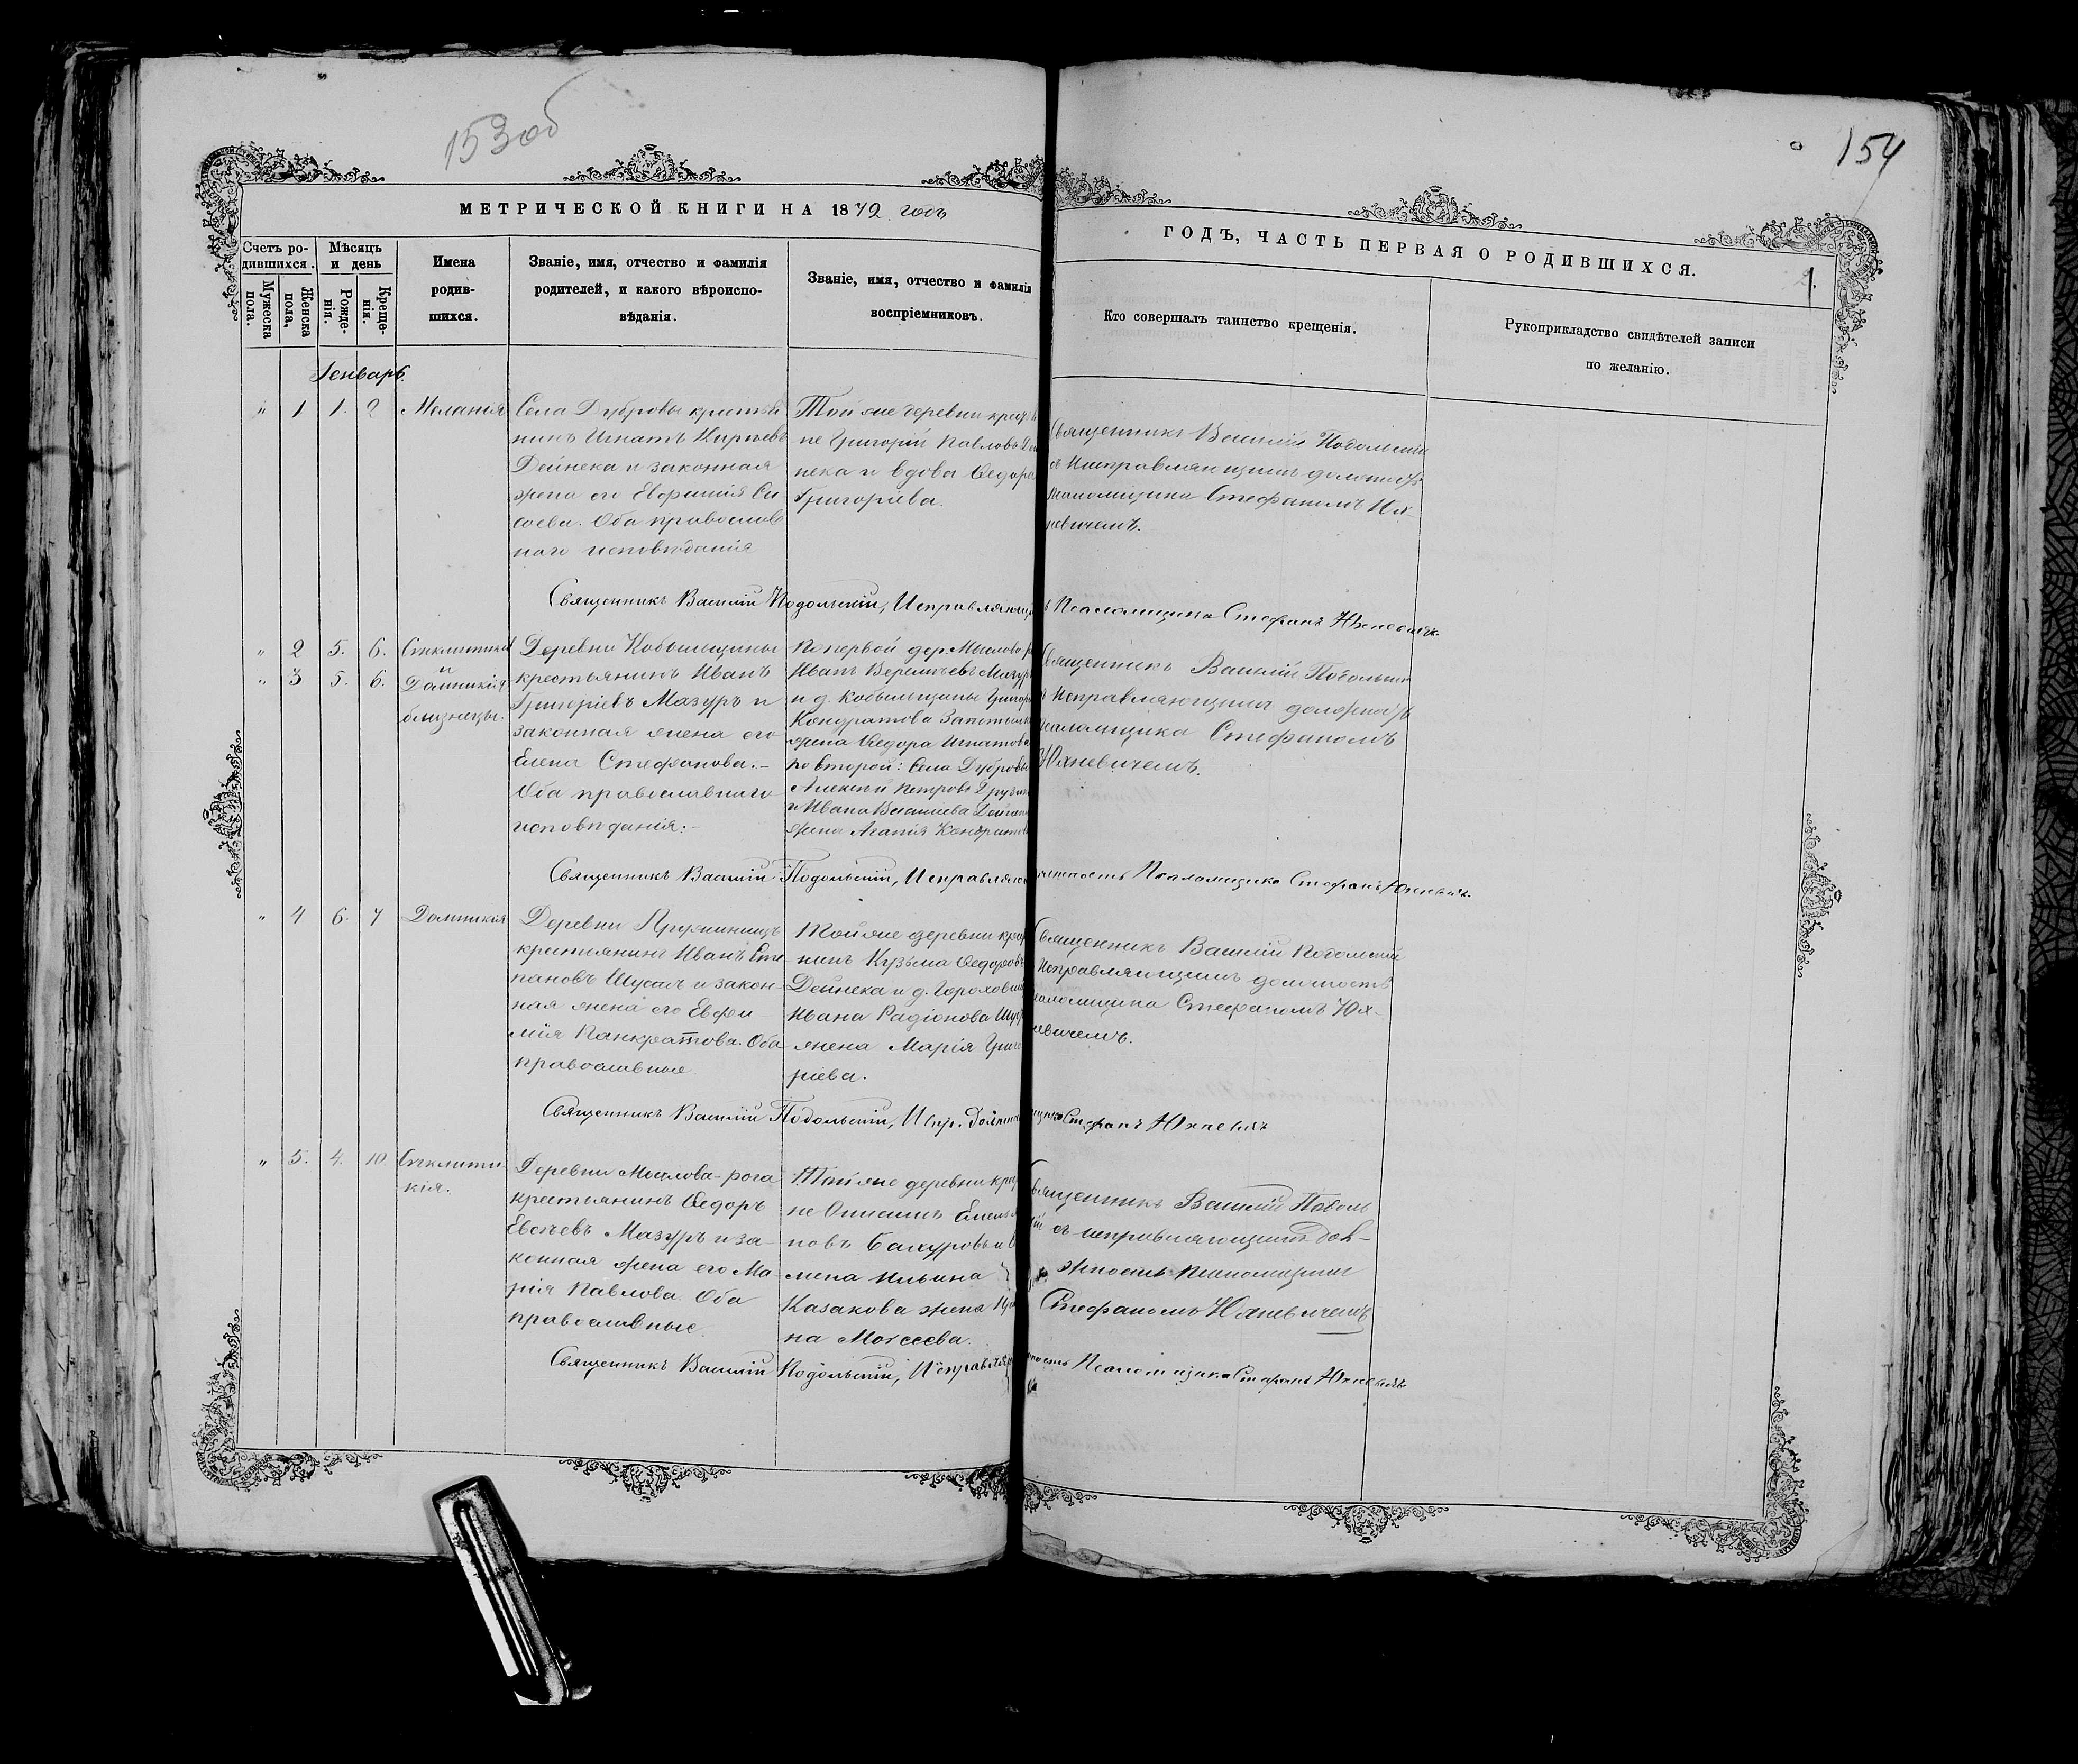 153об
154
МЕТРИЧЕСКОЙ КНИГИ НА 1872 годъ
ГОДЪ, ЧАСТЬ ПЕРВАЯ О РОДИВШИХСЯ.
1.
Счетъ ро-
дившихся.
Мужеска
пола.
Женска
пола,
Мѣсяцъ
и день
Рожде-
нія.
Креще-
нія.
Имена
родив-
шихся.
Званіе, имя, отчество и фамилія
родителей, и какого вѣроиспо-
вѣданія.
Званіе, имя, отчество и фамилія
воспріемниковъ.
Кто совершалъ таинство крещенія.
Рукоприкладство свидѣтелей записи
по желанію.
Генварь.
" 1 1. 2 Меланія
Села Дубровы крестья
нинъ Игнатъ Карповъ
Дейнека и законная
жена его Евфимія Сы
соева. Оба православ
наго исповѣданія
Той же деревни
не Григорій Павловъ
нека и вдова Ѳедора
Григоріева.
Священникъ Василій Подольскій
съ Исправляющимъ должность
Псаломщика Стефаномъ Юх-
невичемъ.
Священникъ Василій Подольскій, Исправляющ Псаломщика Стефанъ Юхневичъ
" 2 5. 6. Синклитикія
и
" 3 5. 6. Домникія
близнецы.
Деревни Кобыльщины
крестьянинъ Иванъ
Григоріевъ Мазуръ и
законная жена его
Елена Стефанова.-
Оба православнаго
исповѣданія:-
По первой дер. Мыслова-ро
Иванъ Мазур
и д. Кобыльщины Григор
Кондратова
жена Ѳедора Игнатова
по второй: Села Дубровы
Алексѣй Петровъ
и Ивана Василіева
жена Агапія Кондратов
Священникъ Василій Подольскій
Исправляющимъ должность
псаломщика Стефаномъ
Юхневичемъ.
Священникъ Василій Подольскій, Исправляю Псаломщика Стефанъ Юхневичъ.
" 4 6. 7 Домникія
Деревни
крестьянинъ Иванъ Сте
пановъ и закон-
ная жена его Евфи
мія Панкратова. Оба
православные
Той же деревни
нинъ Кузьма Ѳедоровъ
Дейнека и д.
Ивана Радіонова
жена Марія Григо
ріева.
Священникъ Василій Подольскій
Исправляющимъ должность
псаломщика Стефаномъ Юх-
невичемъ.
Священникъ Василій Подольскій, Испр. Должно Стефанъ Юхневичъ
" 5. 4. 10 Синклити-
кія.
Деревни Мыслова-рога
крестьянинъ Ѳедоръ
Мазуръ и за-
конная жена его Ма
рія Павлова. Оба
православные.
Той же деревни
не Онисимъ Емелья
новъ
Ильина
Казакова жена
на Моисеева.
Священникъ Василій Подоль
скій съ исправляющимъ дол-
жность Псаломщика
Стефаномъ Юхневичемъ
Священникъ Василій Подольскій, Исправля ность Псаломщика Стефанъ Юхневичъ